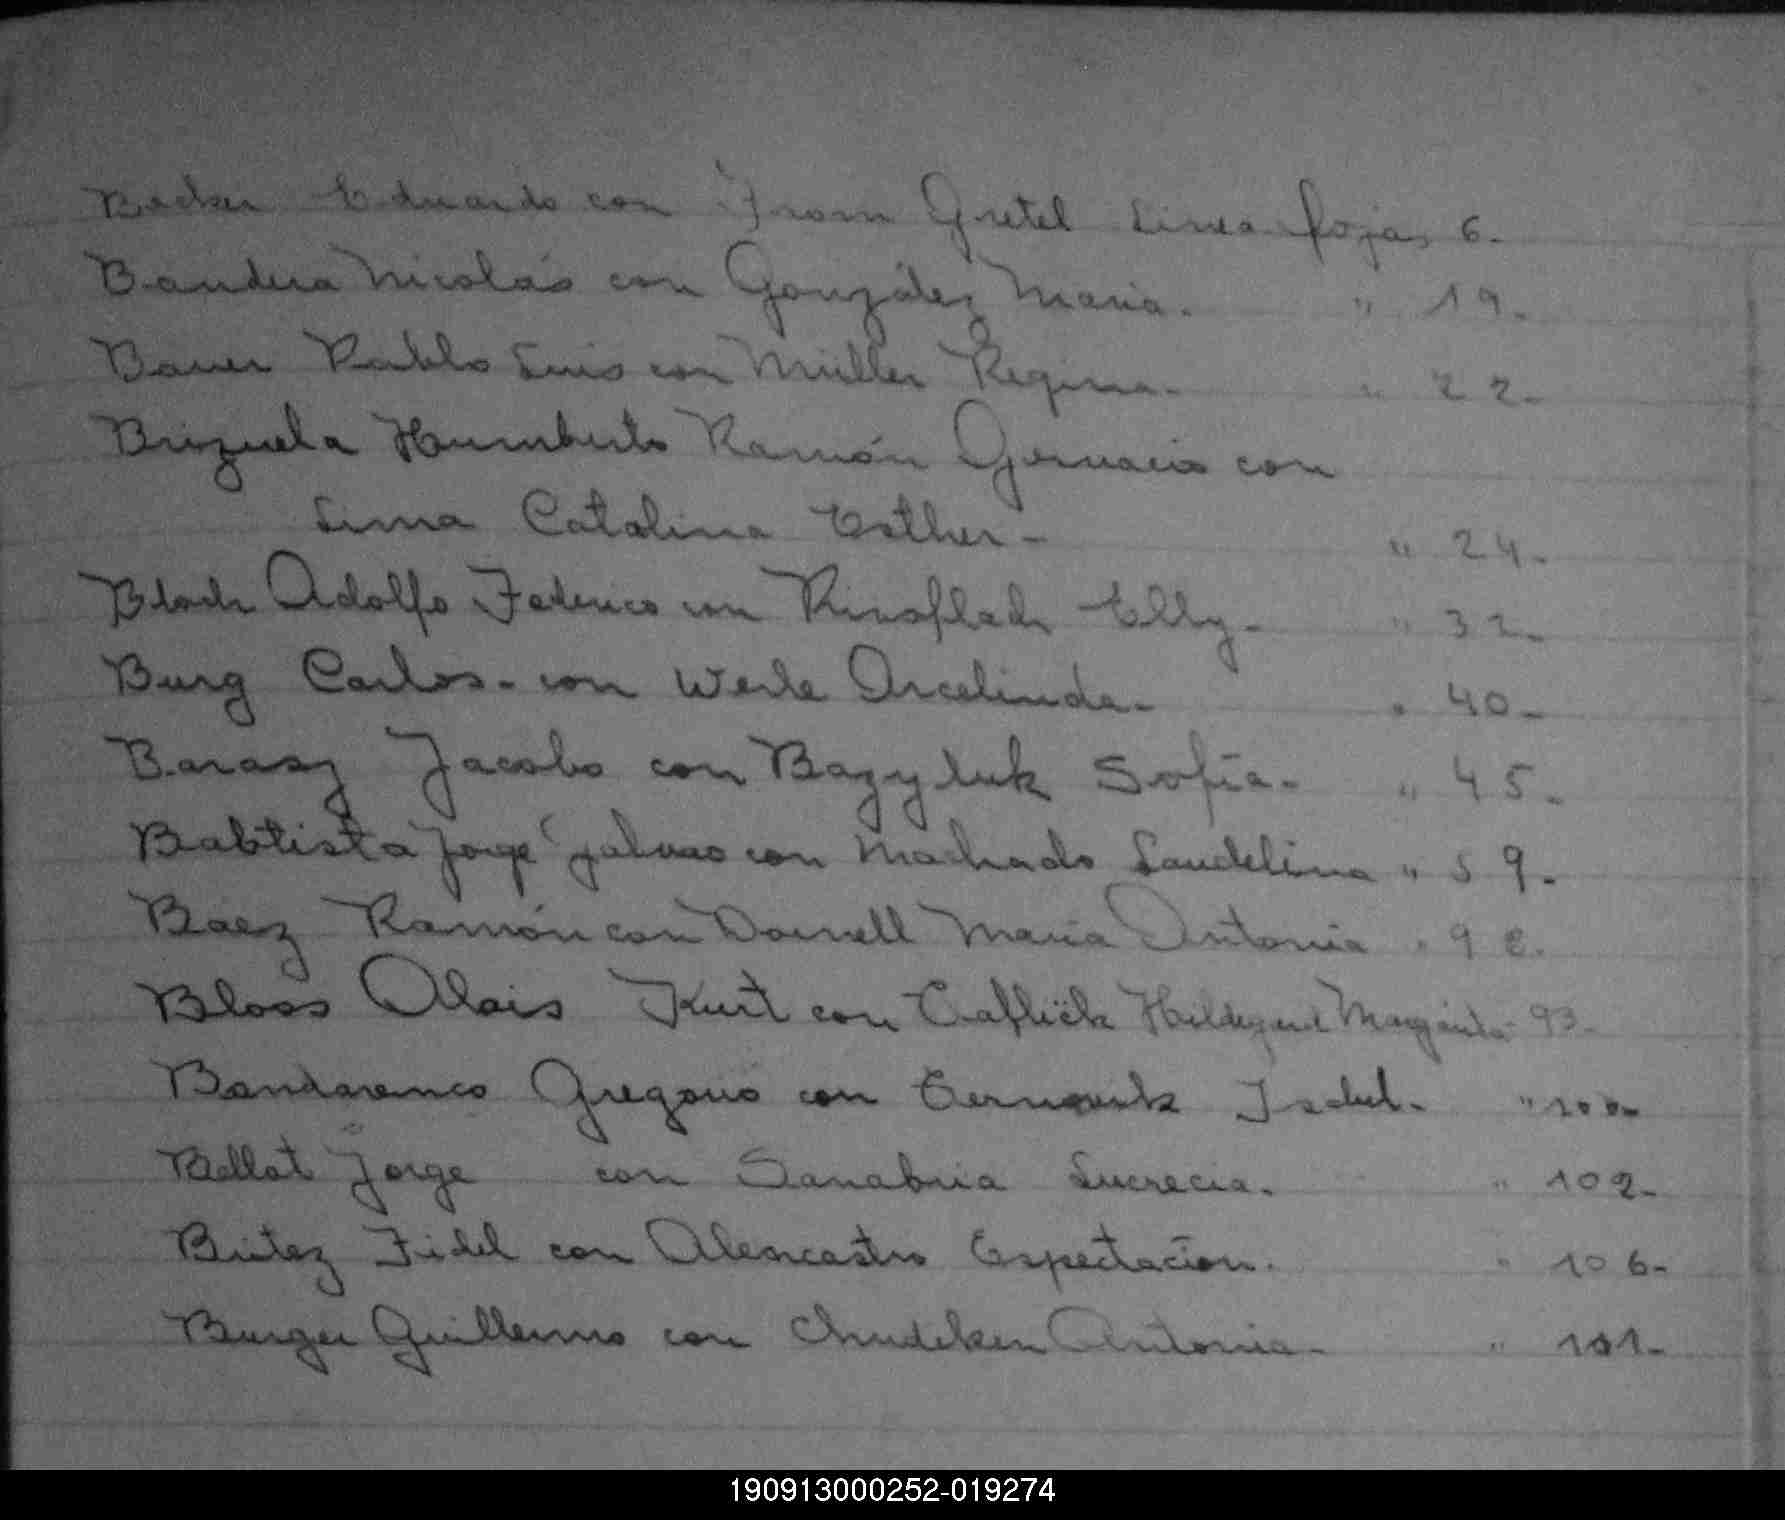 Becker Eduardo con From Gretel Linea fojas 6.
Bandera Nicolás con González Maria. " 19.
Bauer Pablo Luis con Müller Regina. " 22.
Brizuela Humberto Ramón Gervacio con
Lima Catalina Esther - " 24.
Bloch Adolfo Federico con Elly. " 32.
Burg Carlos - con Werle Arcelinda. " 40 -
Barasz Jacobo con Bazyluk Sofía - " 45.
Babtista Jorge con Machado Laudelina " 59.
Baez Ramón con Maria Antonia "
Bloss Alois Kurt con Caflisch Hildegard Margarita - 93.
Bondarenco Gregorio con Isabel. " 100-
Bellot Jorge con Sanabria Lucrecia. " 102-
Britez Fidel con Alencastro Espectacion. " 106-
Burger Guillermo con Antonia - " 101-
190913000252-019274